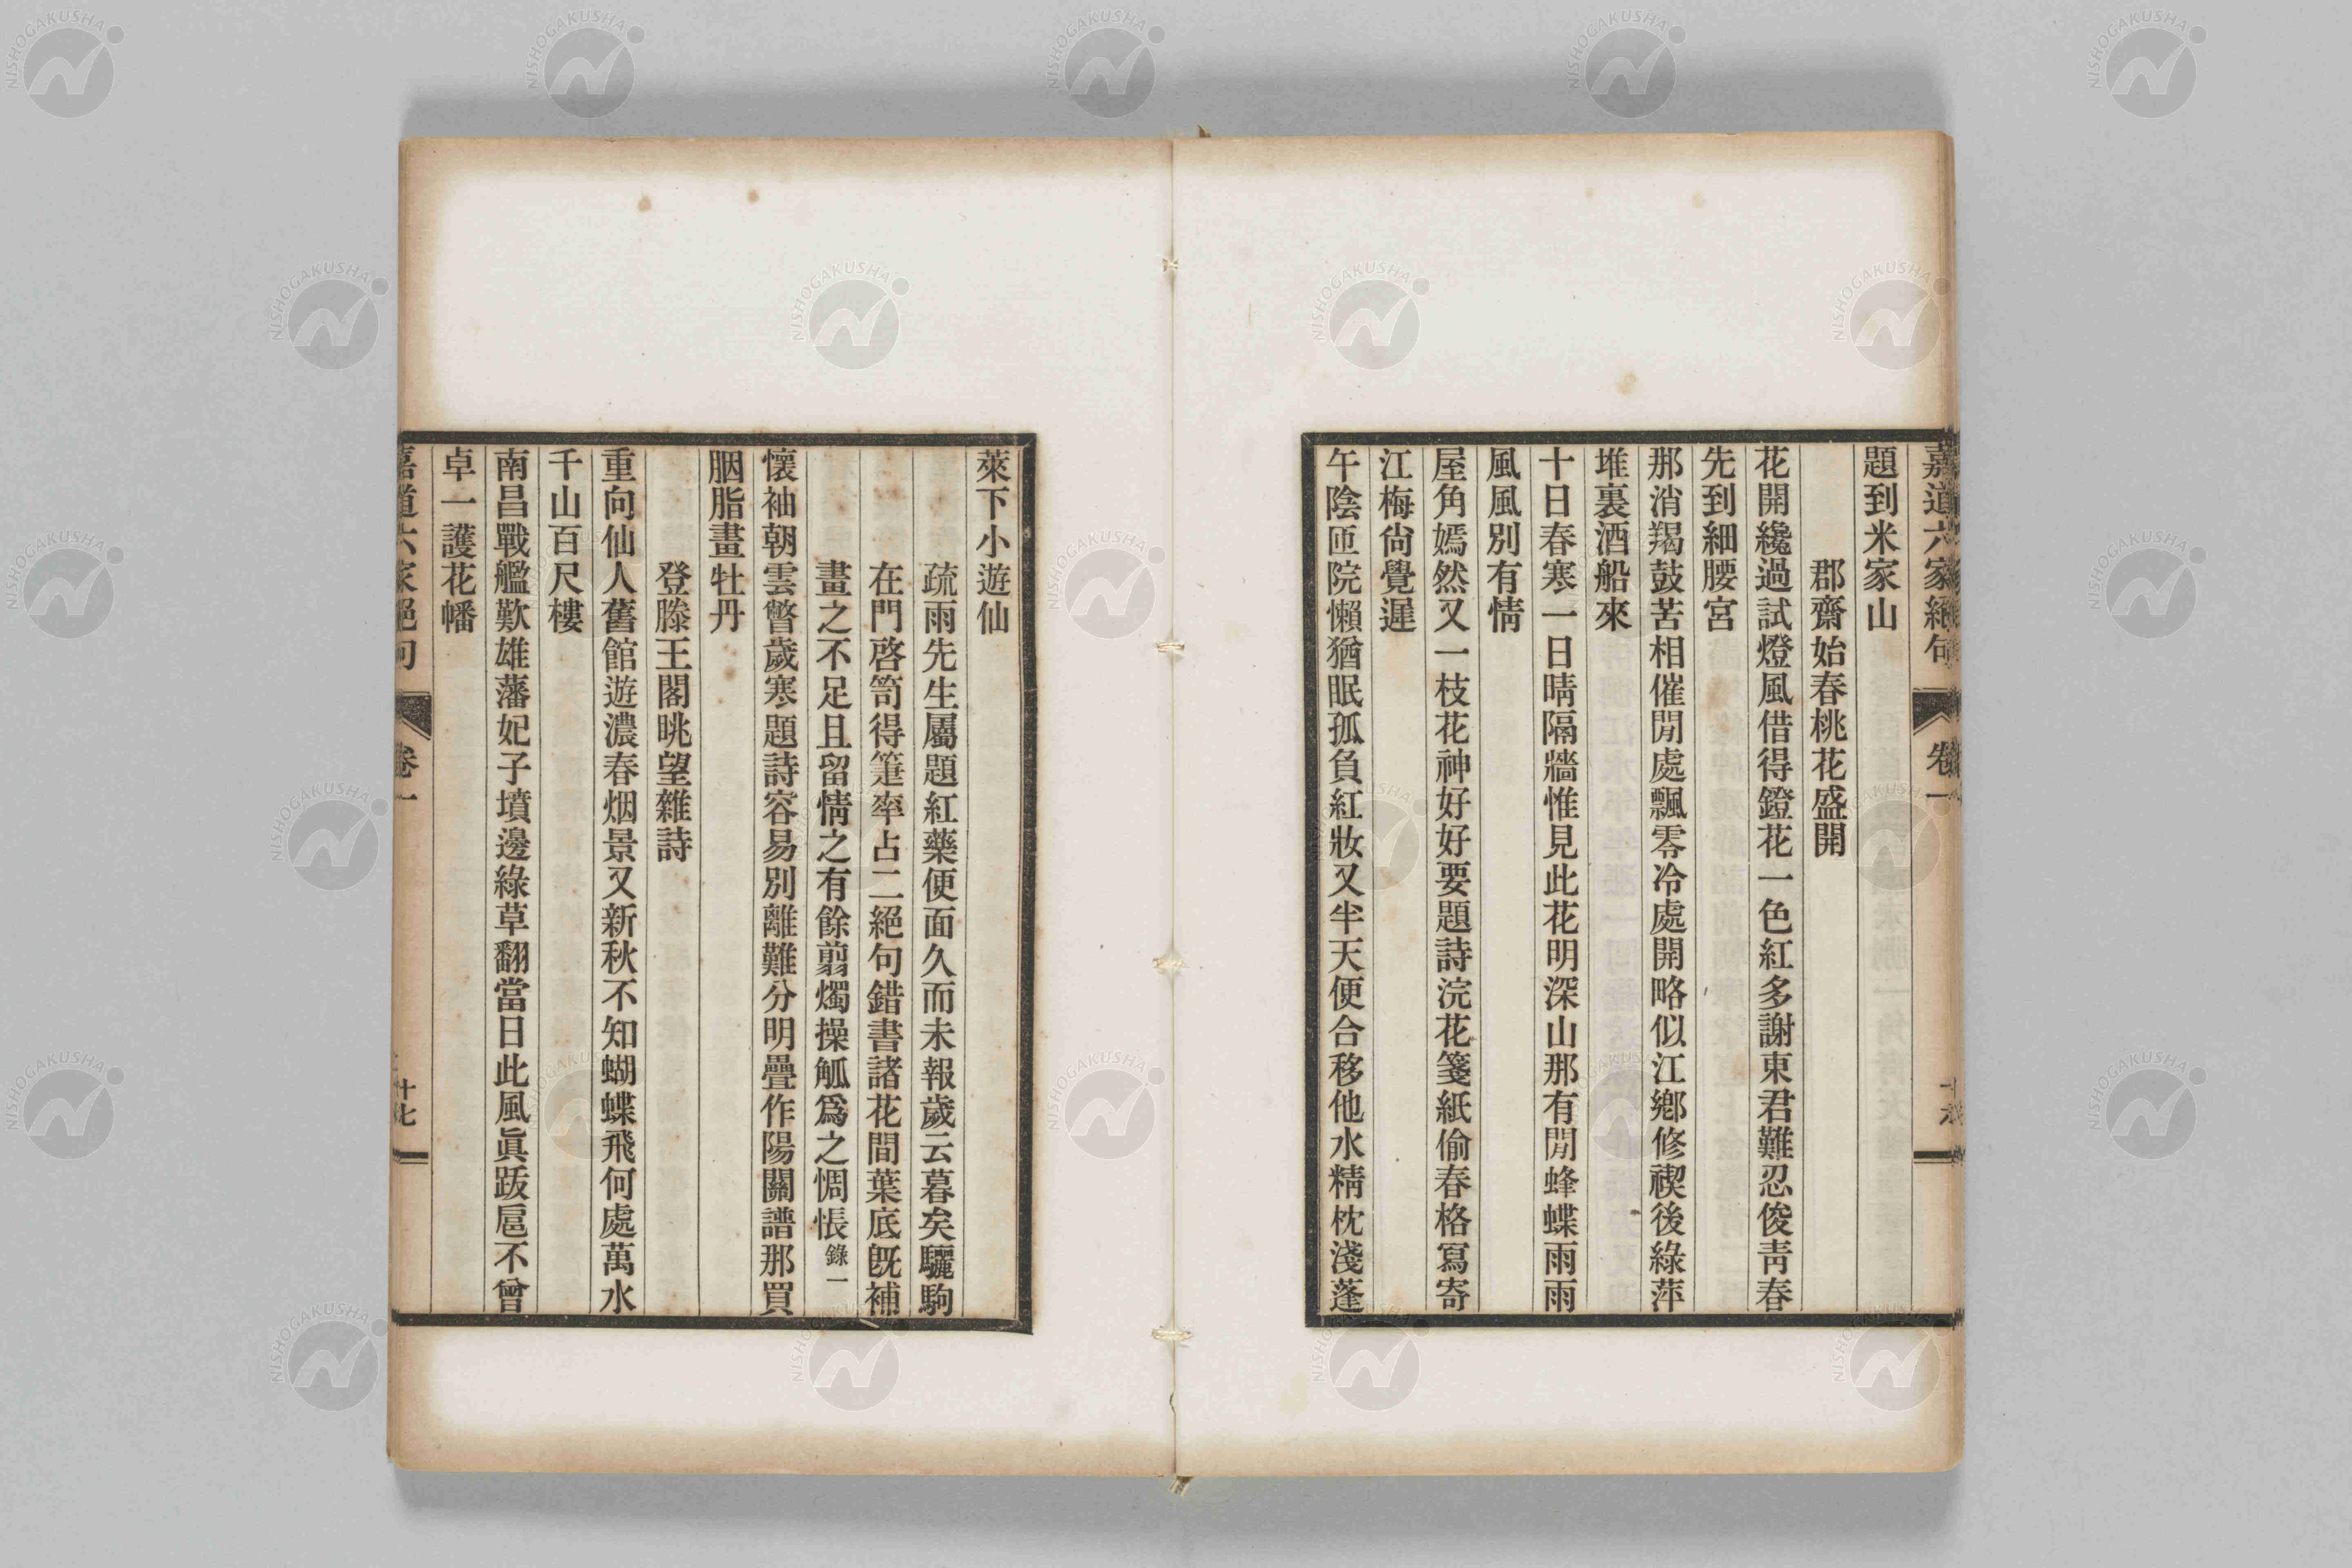 嘉道六家絕句
卷一
十六
題到米家山
郡齋始春桃花盛開
花開纔過試燈風借得鐙花一色紅多謝東君難忍俊靑春
先到細腰宮
那消羯鼓苦相催閒處飄零冷處開略似江鄕修禊後綠萍
堆裏酒船來
十日春寒一日晴隔牆惟見此花明深山那有閒蜂蝶雨雨
風風別有情
屋角嫣然又一枝花神好好要題詩浣花箋紙偷春格寫寄
江梅尙覺遲
午陰匝院懶猶眠孤負紅妝又半天便合移他水精枕淺蓬
萊下小遊仙
疏雨先生屬題紅藥便面久而未報歲云暮矣驪駒
在門啓笥得箑率占二絕句錯書諸花間葉底旣補
畫之不足且留情之有餘翦燭操觚爲之惆悵錄一
懷袖朝雲瞥歲寒題詩容易別離難分明疊作陽關譜那買
胭脂畫牡丹
登滕王閣眺望雜詩
重向仙人舊館遊濃春烟景又新秋不知蝴蝶飛何處萬水
千山百尺樓
南昌戰艦歎雄藩妃子墳邊綠草翻當日此風眞跋扈不曾
卓一護花幡
嘉道六家絕句
卷一
十七
NISHOGAKUSHA